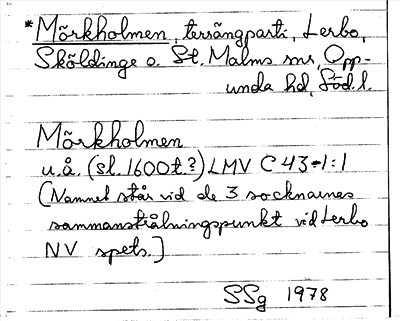 *Mörkholmen, terrängparti, Lerbo,
Sköldinge o. St. Malms snr, Opp-
unda hd, Söd. l.
Mörkholmen
u.å. (sl. 1600t.?) LMV C 43-1:1
(Namnet står vid de 3 socknarnas
sammanstrålningspunkt vid Lerbo
NV spets.)
SSg 1978